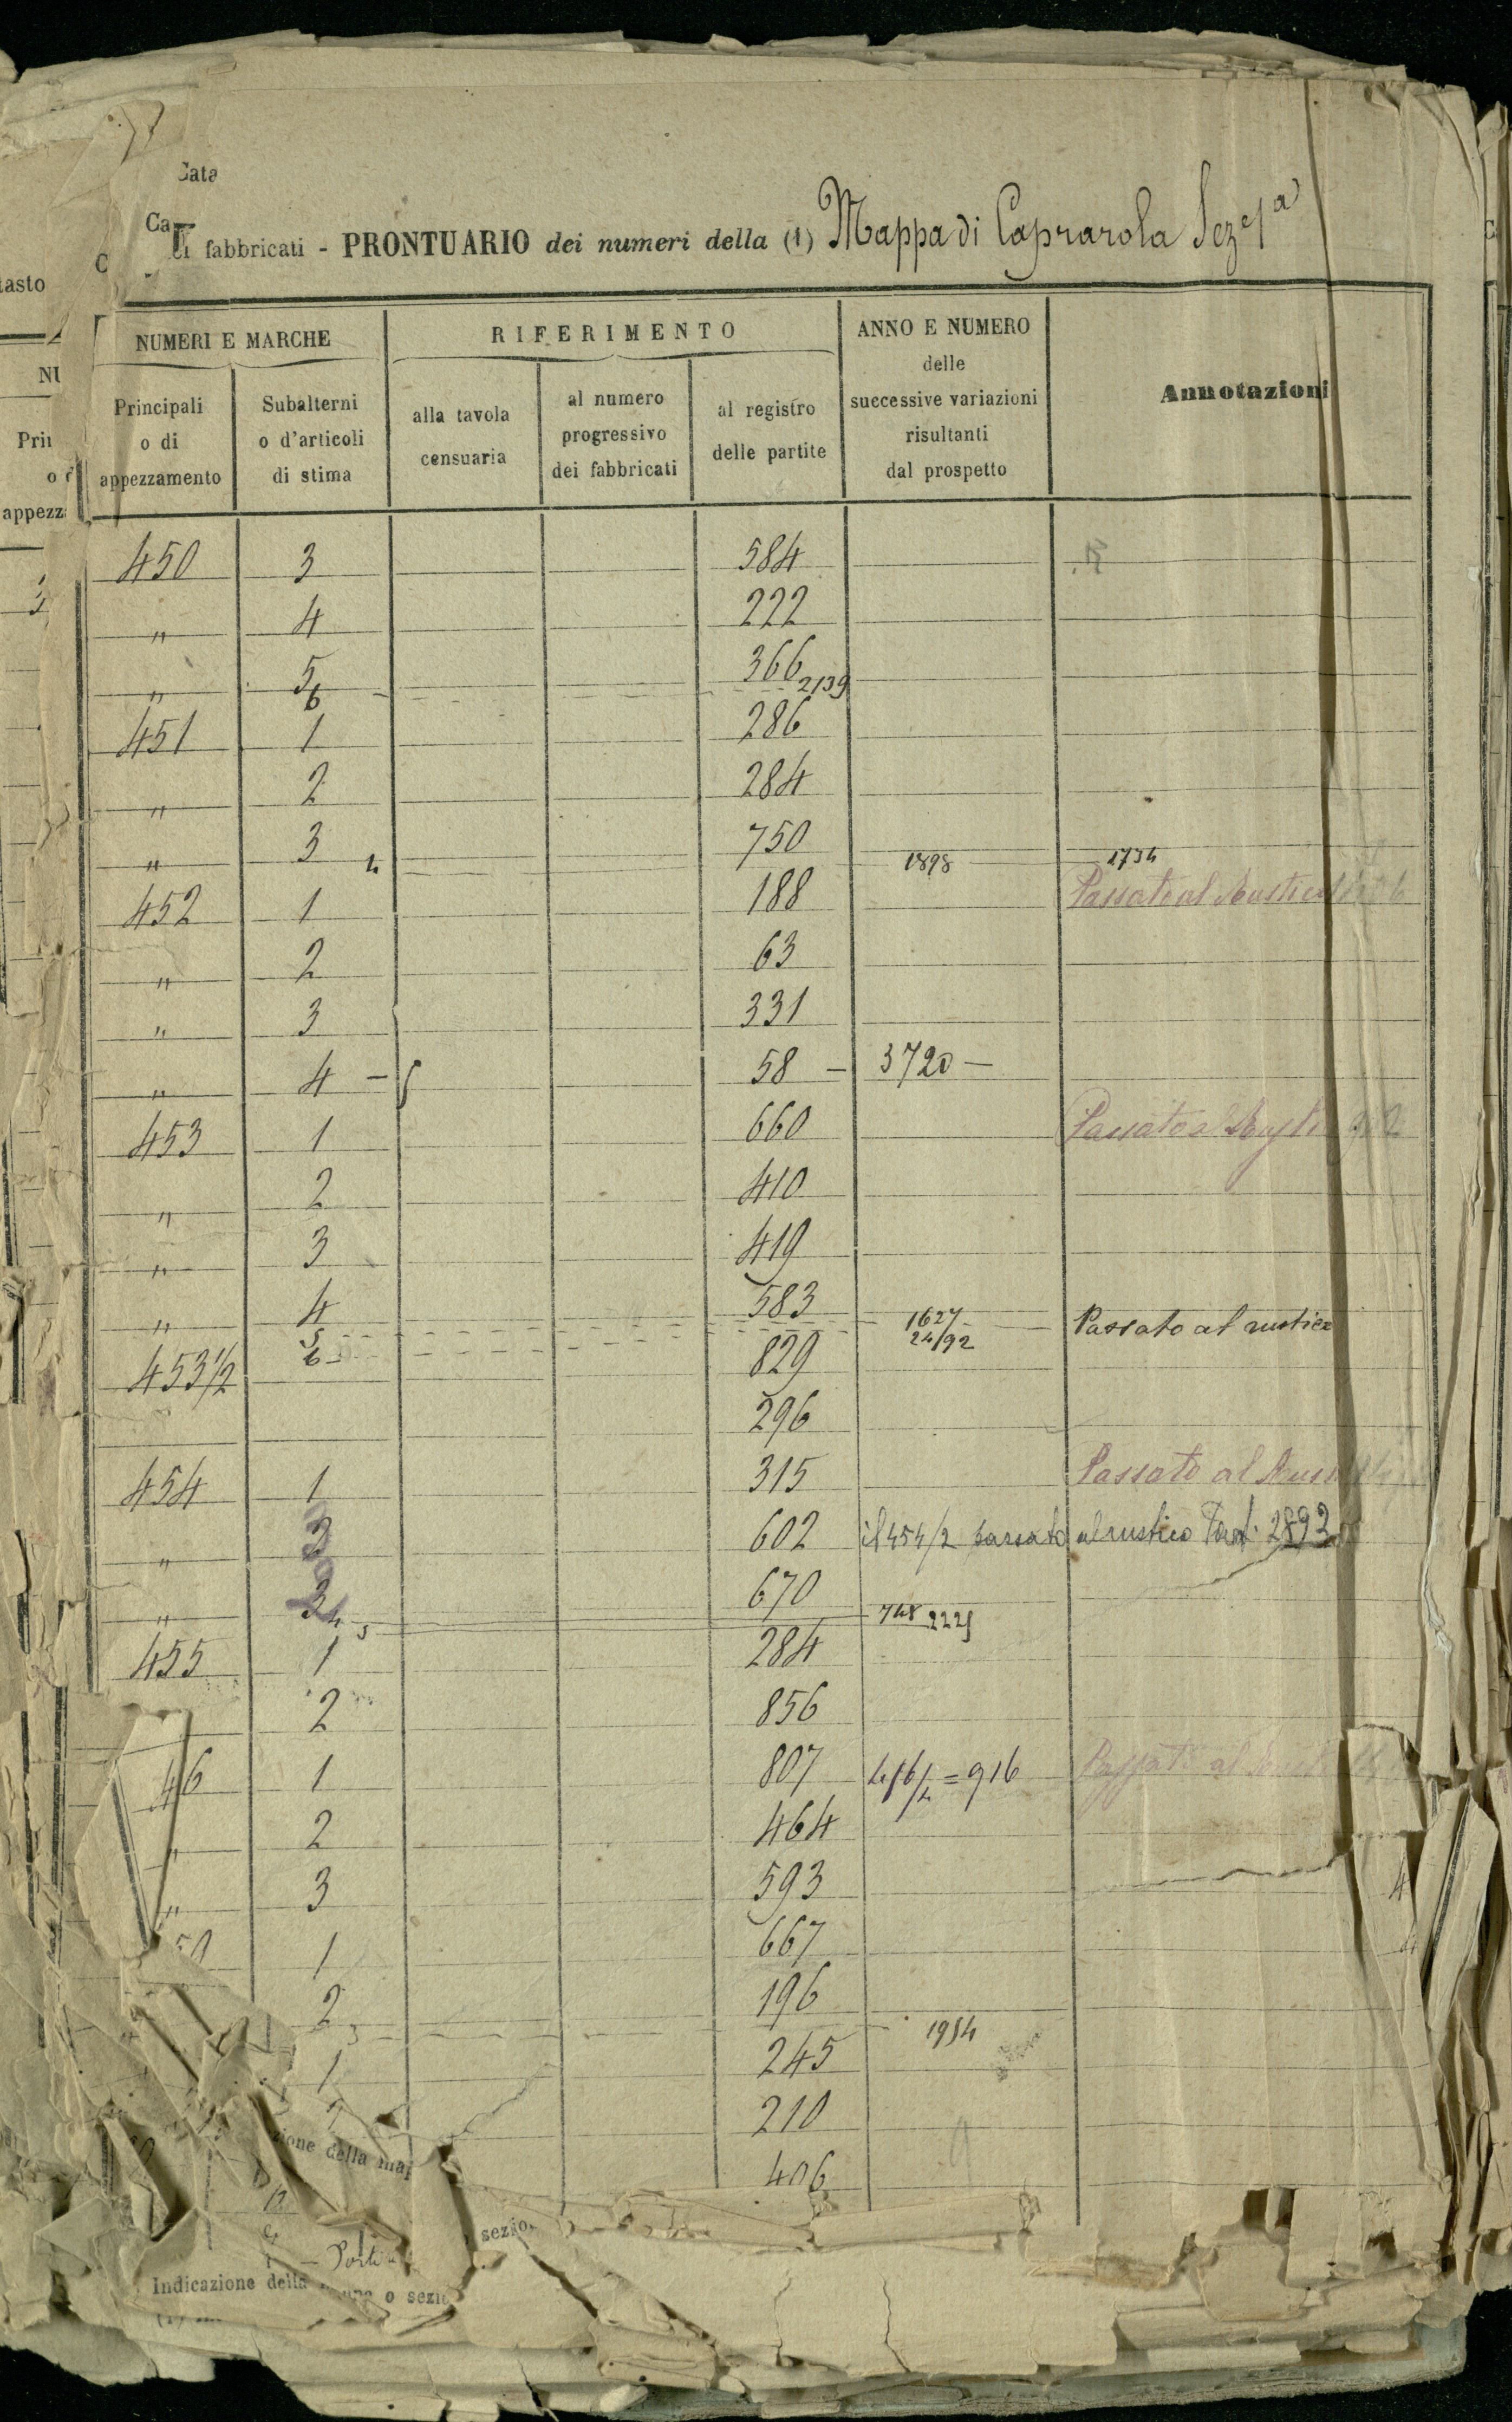 Cata
Ca
fabbricati - PRONTUARIO dei numeri della (1) Mappa di Caprarola Sez. 1ª
tasto
NUMERI E MARCHE
RIFERIMENTO
ANNO E NUMERO
delle
successive variazioni
risultanti
dal prospetto
Annotazioni
Principali
o di
appezzamento
Subalterni
o d'articoli
di stima
alla tavola
censuaria
al numero
progressivo
dei fabbricati
al registro
delle partite
450 3 584
" 4 222
" 5 366
6 2139
451 1 286
" 2 284
" 3 750
4 1898 1734
452 1 188 Passato al Rustico
" 2 63
" 3 331
" 4 — 58 — 3720 —
453 1 660 Passato
" 2 410
" 3 419
" 4 583
5 1627
6 24/92 Passato al rustico
453 1/2 829
296
454 1 315 Passato al
" 2 602 il 454/2 passato al rustico Part. 2892
" 3 670
4 5 748 2225
455 1 284
2 856
46 1 807 = 916
" 2 464
" 3 593
1 667
2 196
3 1954
1 245
2 210
406
zione della map
sezio
Indicazione della
o sezio